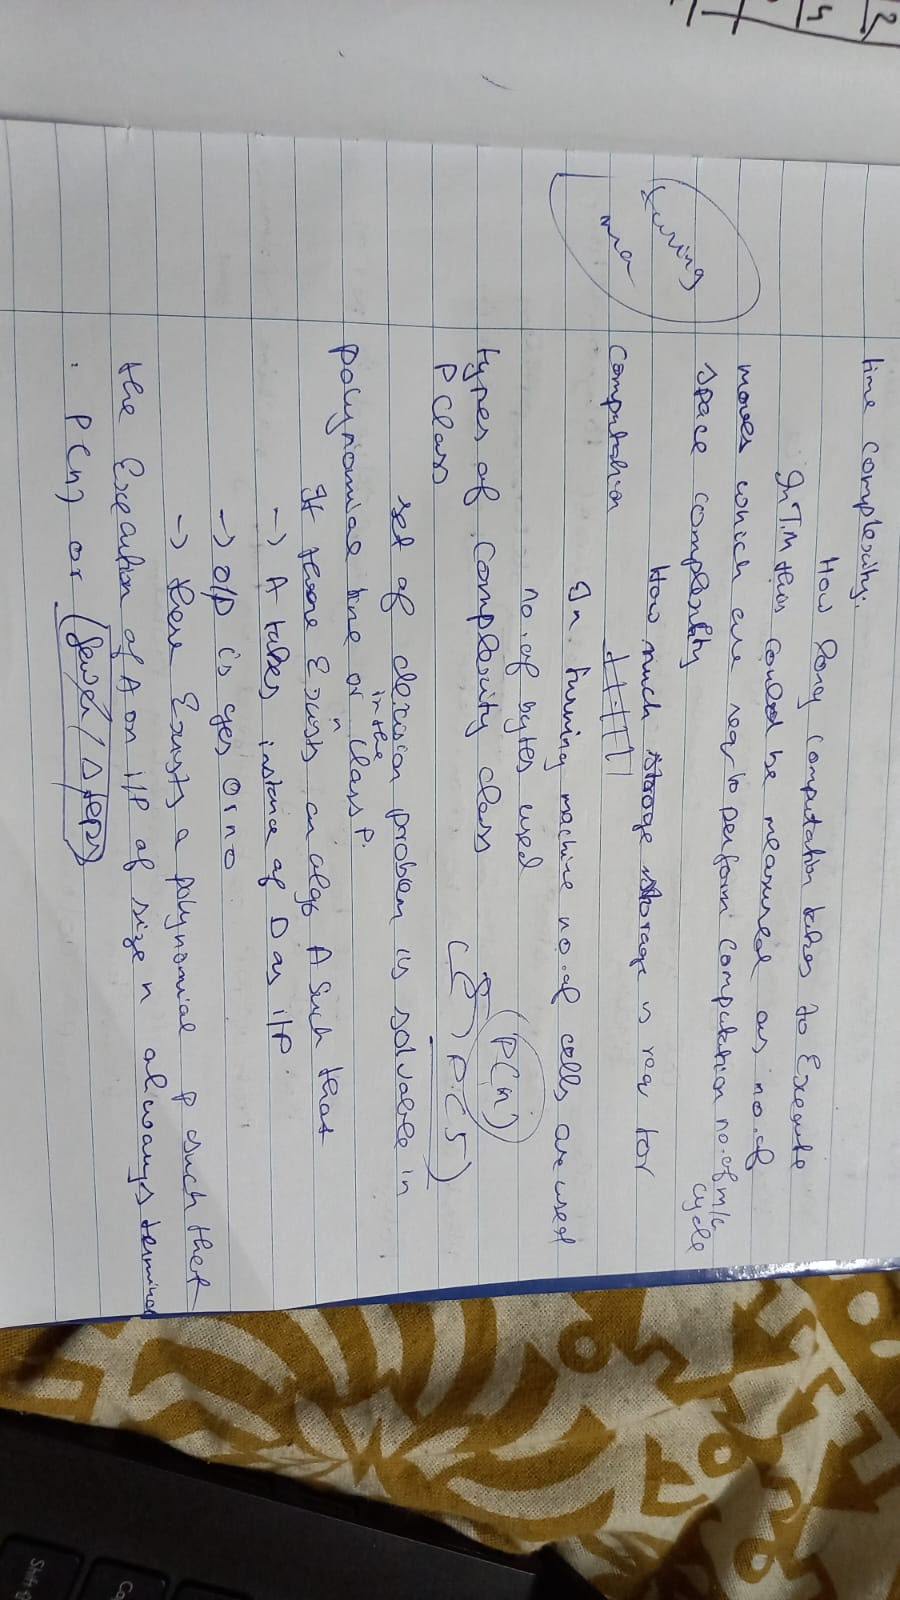 time complexity.
How long computation takes to Execute
In T.M this could be measured as no. of
moves which are req to perform computation no. of m/c
cycle
Space complexity
How much storage is req for
Turing
computation
In turing machine no. of cells are used
no. of bytes used
P(n)
types of complexity class
P class
set of decision problem is solvable in
polynomial time or in the class P.
It there Exists an algo A such that
-> A takes instance of D as i/p.
-> o/p is yes or no
-> there Exists a polynomial p such that
the Execution of A on i/p of size n always terminat
P(n) or (fewer / steps)
Shift